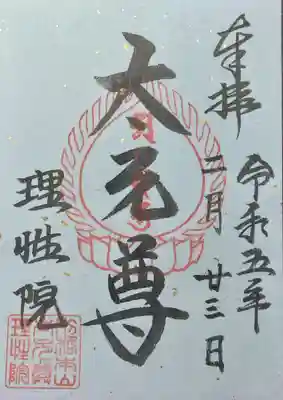 奉拝
令和五年
二月廿三日
大元尊
理性院
理性院